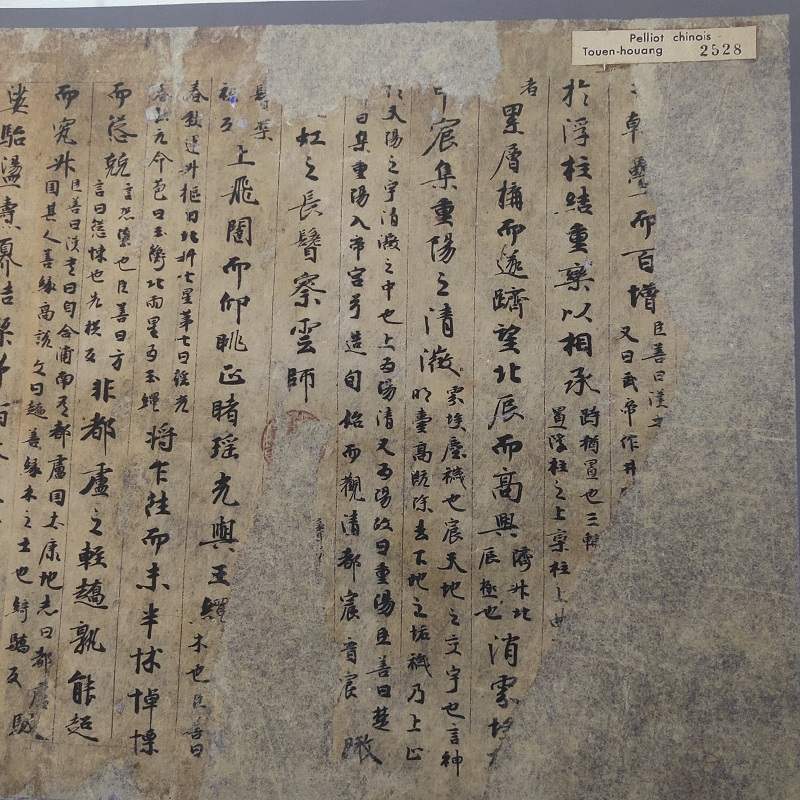 Pelliot chinois
Touen-houang 2528
幹疊而百增
臣善曰漢
又曰武帝作井
於浮柱結重欒以相承
跱猶置也三輔
置浮柱之上栾柱上曲
者
累層構而遂隮望北辰而高興
隮升北
辰極也
消雰埃
宸集重陽之清澂
雰埃塵穢也宸天地之交宇也言神
明臺高既除去下地之垢穢乃上止
天陽之宇清澂之中也上為陽清又為陽故曰重陽臣善曰楚
曰集重陽入帝宮兮造旬始而觀清都宸音辰
瞰
虹之長鬐察雲師
上飛闥而仰眺正睹瑤光與玉繩
木也臣善曰
春秋運斗樞曰北斗七星第七曰瑤光
春秋元命苞曰玉衡北兩星為玉繩
將乍往而未半怵悼慄
而慫兢
言恐墜也臣善曰方
言曰慫悚也先拱反
非都盧之輕趫孰能超
而究升
臣善曰漢書曰自合浦南有都盧国太康地志曰都盧
国其人善緣高說文曰趫善緣木之士也綺驕反
馺
娑駘盪燾奡桔桀